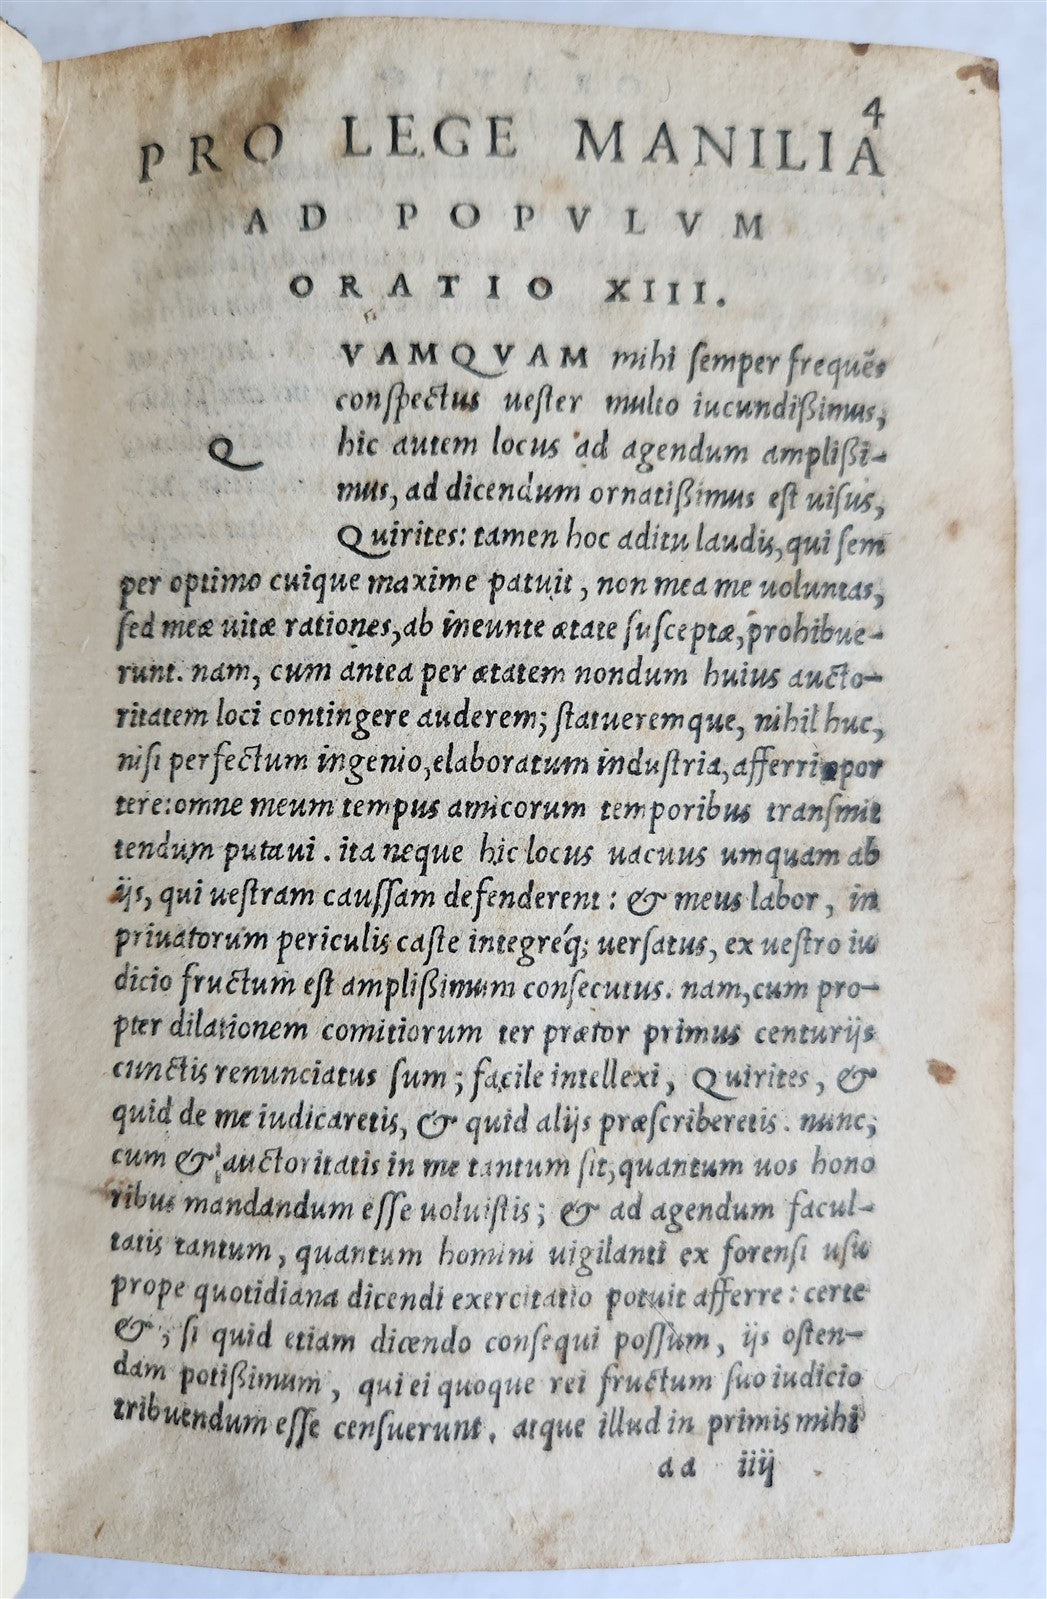 4
PRO LEGE MANILIA
AD POPVLVM
ORATIO XIII.
Q VAMQVAM mihi semper frequẽs
conspectus uester multo iucundißimus,
hic autem locus ad agendum amplißi-
mus, ad dicendum ornatißimus est uisus,
Quirites: tamen hoc aditu laudis, qui sem
per optimo cuique maxime patuit, non mea me uoluntas,
sed meæ uitæ rationes, ab ineunte ætate susceptæ, prohibue-
runt. nam, cum antea per ætatem nondum huius aucto-
ritatem loci contingere auderem; statueremque, nihil huc,
nisi perfectum ingenio, elaboratum industria, afferri opor
tere: omne meum tempus amicorum temporibus transmit
tendum putaui. ita neque hic locus uacuus umquam ab
ijs, qui uestram caussam defenderent: & meus labor, in
priuatorum periculis caste integréq; uersatus, ex uestro iu
dicio fructum est amplißimum consecutus. nam, cum pro-
pter dilationem comitiorum ter prætor primus centurijs
cunctis renunciatus sum; facile intellexi, Quirites, &
quid de me iudicaretis, & quid alijs præscriberetis. nunc,
cum & auctoritatis in me tantum sit, quantum uos hono
ribus mandandum esse uoluistis; & ad agendum facul-
tatis tantum, quantum homini uigilanti ex forensi usu
prope quotidiana dicendi exercitatio potuit afferre: certe
&, si quid etiam dicendo consequi possum, ijs osten-
dam potißimum, qui ei quoque rei fructum suo iudicio
tribuendum esse censuerunt. atque illud in primis mihi
aa iiij